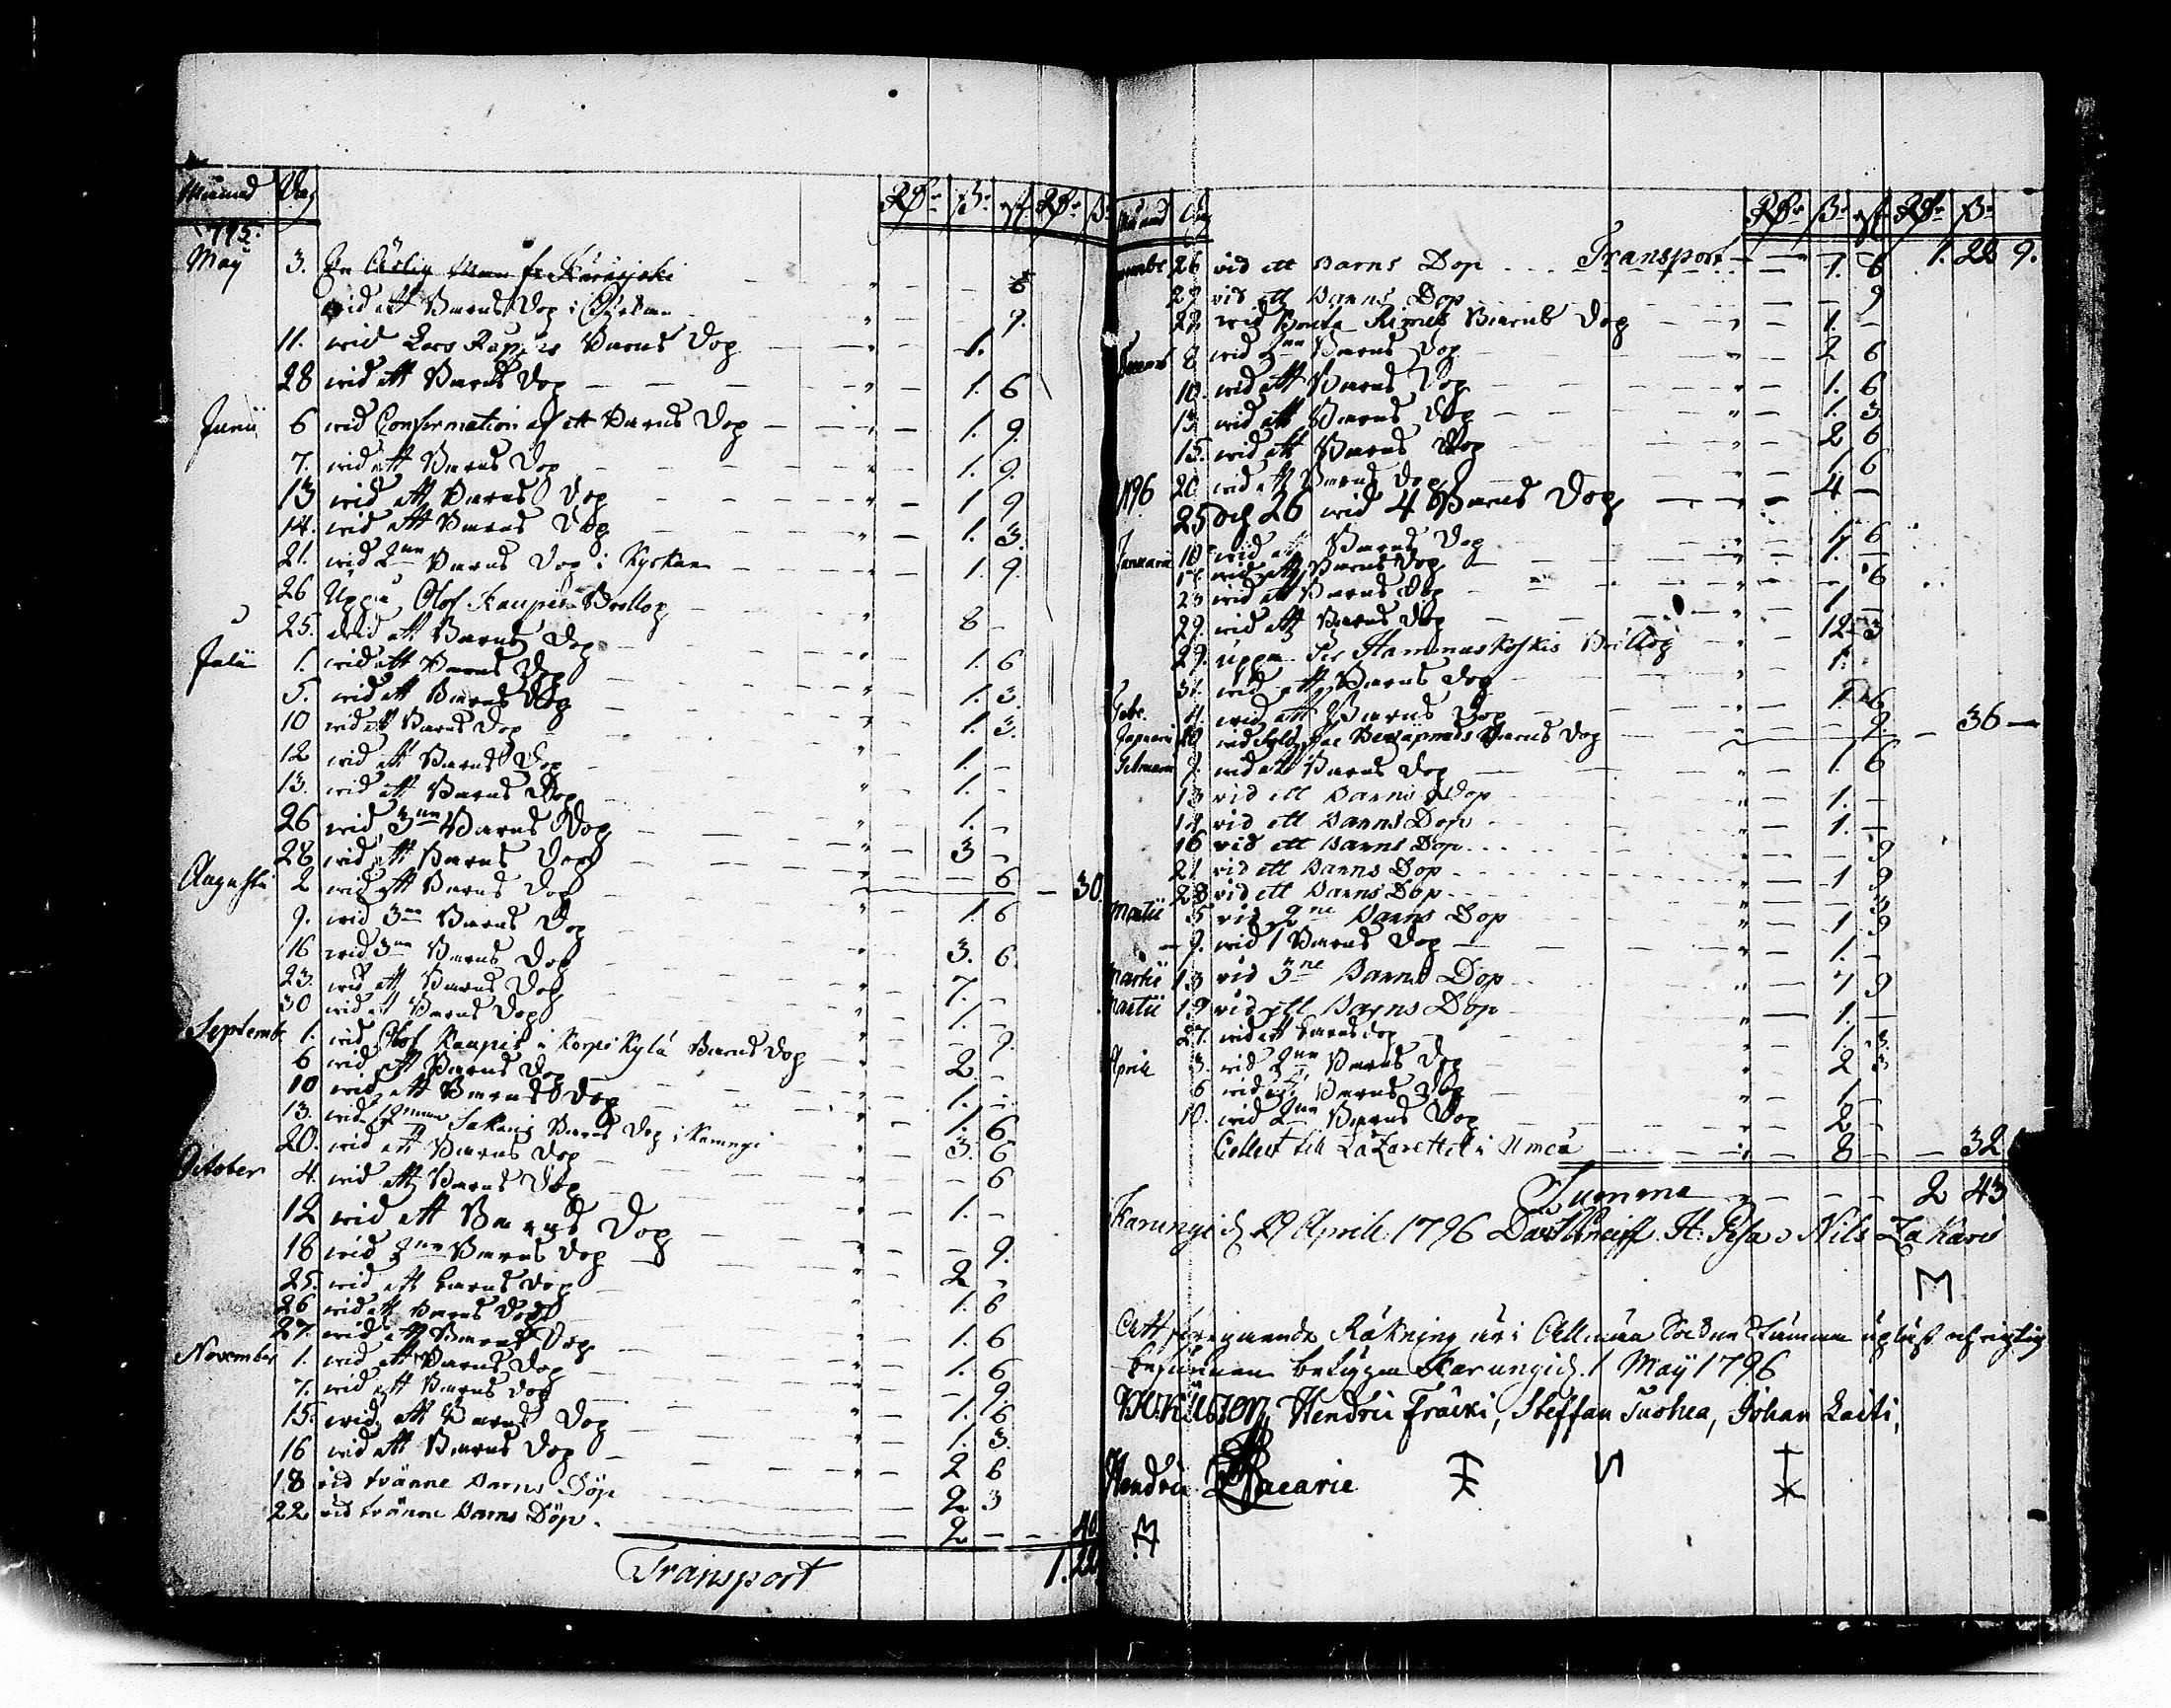 Månad Dag Rdr ß. rst Rdr ß.
1795.
May 3. En Ärlig Man fr.
wid ett Barns Dop i
9.
11. wid Lars Barns Dop 1.
28 wid ett Barns Dop 1. 6
Junii 6 wid Confirmation af ett Barns Dop 1. 9.
7. wid ett Barns Dop 1. 9.
13 wid ett Barns Dop 1 9
14. wid ett Barns Dop 1. 3.
21. wid 2ne Barns Dop i Kyrkan 1. 9.
26 Uppå Olof Kaupis Bröllop 8 -
25. wid ett Barns Dop 1. 6
Julii 1. wid ett Barns Dop 1. 3.
5. wid ett Barns Dop 1. 3.
10 wid ett Barns Dop 1. -
12 wid ett Barns Dop 1. -
13. wid ett Barns Dop 1. -
26 wid 3ne Barns Dop 3 -
28 wid ett Barns Dop 6 30.
Augusti 2 wid ett Barns Dop 1. 6
9. wid 3ne Barns Dop 3. 6.
16 wid 3ne Barns Dop 7. -
23. wid ett Barns Dop 1. -
30 wid ett Barns Dop 9.
Septemb 1. wid Olof Kaupis i Korpikylä Barns Dop 2 -
6 wid ett Barns Dop 1. -
10 wid ett Barns Dop 1. 6
13. wid Barns Dop i Karungi 3. 6
20. wid ett Barns Dop 6
October 4. wid ett Barns Dop 1. -
12 wid ett Barns Dop 9.
18 wid 2ne Barns Dop 2 -
25. wid ett barns Dop 1. 6
26 wid ett Barns Dop 1. 6
27. wid ett Barns Dop 1. 6
November 1. wid ett Barns Dop 9.
7. wid ett Barns Dop 1. 6
15. wid ett Barns Dop 1. 3.
16 wid ett Barns Dop 2 6
18 vid tvänne Barns Döp 2 3
22 vid tvänne Barns Döp. 2 - 40
Transport 1. 22
Månad Dag Rdr ß. rst Rdr ß.
Transport 1. 22 9.
26 vid ett Barns Dop 1. 6
27 vid ett Barns Dop 9
29 wid Barns Dop 1. -
8 wid 2ne Barns Dop 2 6
10. wid ett Barns Dop 1. 6
13 wid ett Barns Dop 1. 3.
15. wid ett Barns Dop 2 6
20 wid ett Barns Dop 1 6
1796 25 och 26 wid 4 Barns Dop 4 -
Januarii 10 wid ett Barns Dop 1 6
wid ett Barns Dop 1. -
23 wid ett Barns Dop 6
29. wid ett Barns Dop 1 -
29. uppå Per Hammaskoskis Bröllop 12 3
31. wid ett Barns Dop 1.
Febr. wid ett Barns Dop 1 6
wid Barns Dop 9. 36 -
Februarii 9. wid ett Barns Dop 1. 6
13 vid ett Barns Dop 1. -
14 vid ett Barns Dop 1. -
16 vid ett Barns Dop 9
21 vid ett Barns Dop 1 9
28 vid ett Barns Dop 3
Martii 5 vid 2ne Barns Dop 1 9
9. wid 1 Barns Dop 1. -
Martii 13 vid 3ne Barns Dop 7 9
Martii 19 vid ett Barns Dop 1. -
27. wid ett barns Dop 1. 3.
Aprile 3. wid 2ne Barns Dop 2 3
6 wid ett Barns Dop 1 -
10. wid 2ne Barns Dop 2 -
Collect till Lazarettet i Umeå 8 - 32
Summa 2 43
Karungi d. 29 Aprill 1796 Nils Zakari
Att föregående Räkning är i Allmän Sockne Stämma upläst och rigtig
befunnen betygar Karungi d. 1 May 1796
Hendric Fräcki, Steffan Tuohea, Johan Laiti,
Hendric Zacarie